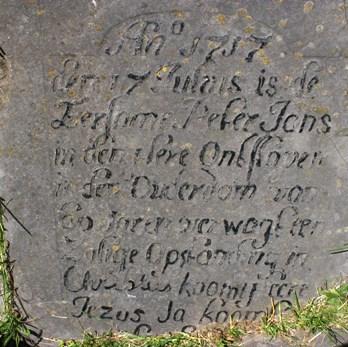 Anº 1717
den 17 Julius is de
Eersame Peter Jans
in den Here Ontslapen
in den Ouderdom van
60 Jaren verwagt een
Salige Opstanding in
Christus koomst Here
Jezus Ja koom